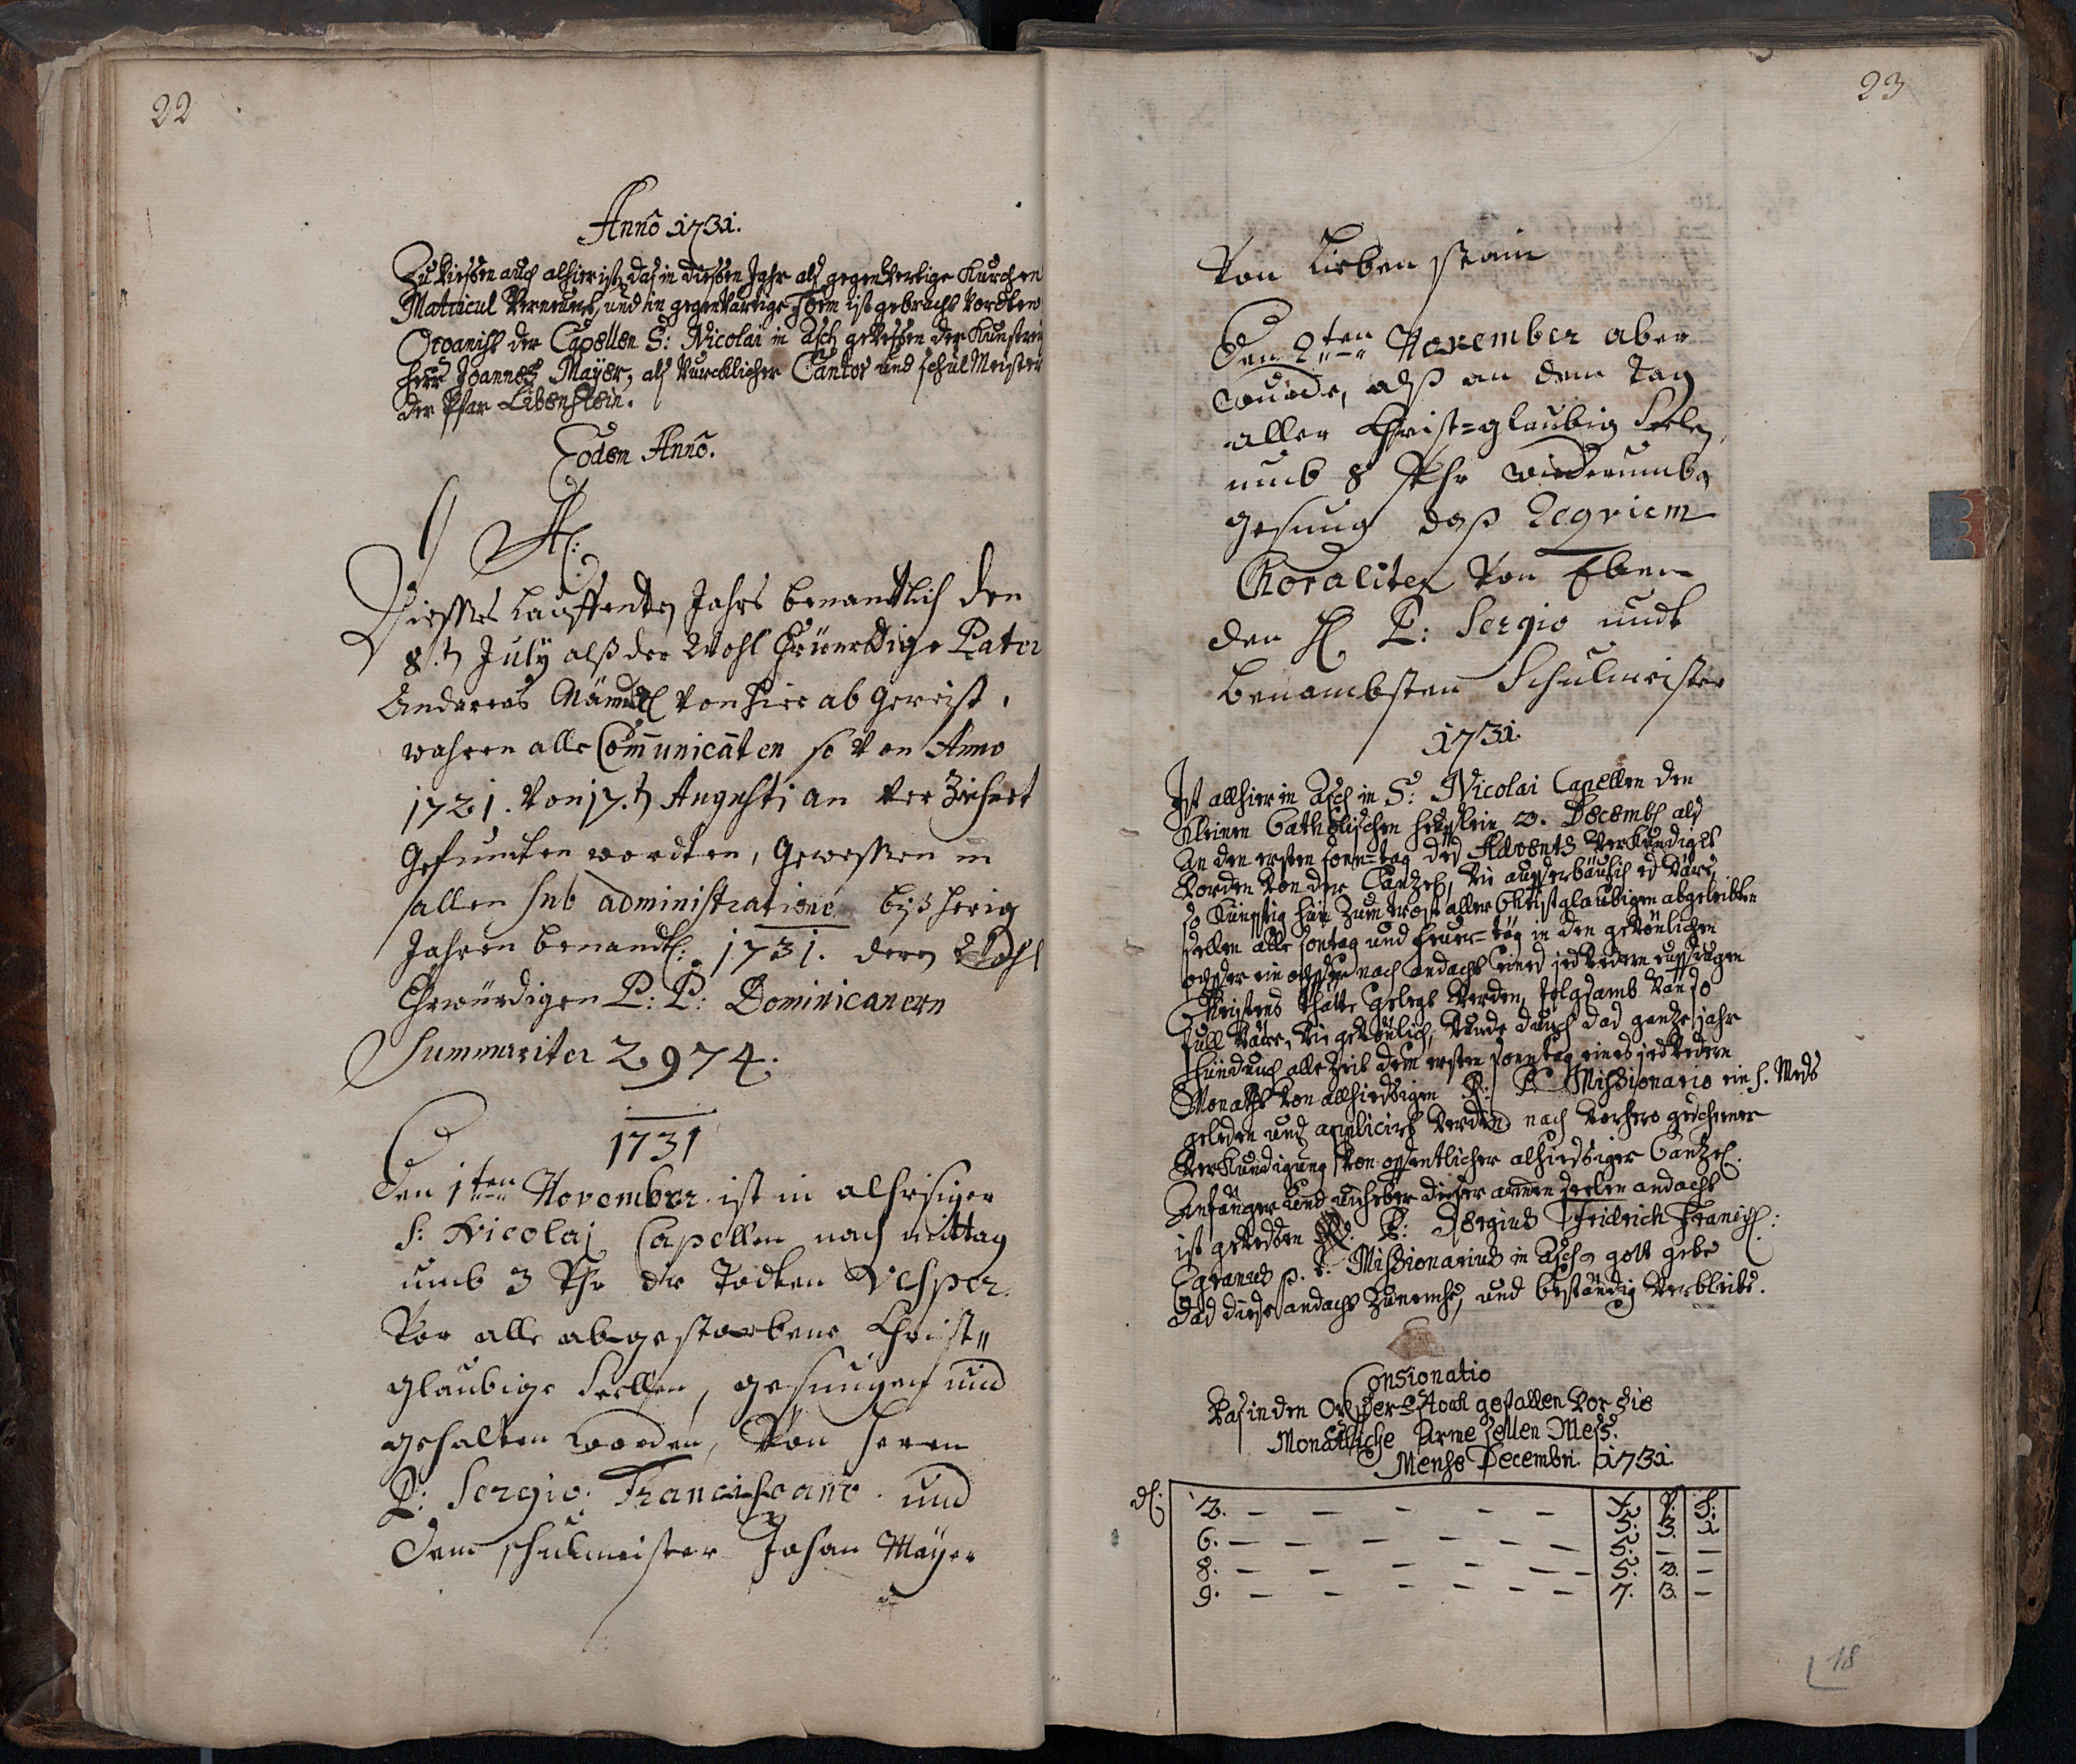 22
Anno 1731.
Zu wissen auch alhier ist, das in diessen Jahr als gegenwertige Kurchen
Matricul vernewrt, und in gegenwärtige Form ist gebracht worden
Organist der Capellen S: Nicolai in Asch gewessen der Kunstrei
Herr Joannes Mayer, als würcklicher Cantor und schul Meister
der Pfar Libenstein.
Eodem Anno.
Diesses lauffenden Jahrs benandtlich den
8.t July alß der Wohl Ehrwerdige Pater
Andreas von hier ab gereist,
wahren alle Communicāten so von Anno
1721. von 17.t Augusti an verzeichnet
gefundten wordten, gewessen in
allen sub administratione bißherig
Jahren benandtl: 1731. deren Wohl
Ehrwürdigen P: P: Dominicanern
Summariter 2974.
1731
Den 1ten November ist in alhisiger
S: Nicolaj Capellen nach mittag
umb 3 Uhr die Todten Vesper
Vor alle abgestorbene Christ„
glaubige Seellen, gesungen und
gehalten worden, Von Herrn
P: Sergio Franciscano und
dem schulmeister Johan Mayer
23
Von Liebenstain
Den 2ten November aber
wurde, alß an dem Tag
aller Christ=glaubig Seelen
umb 8 Uhr widerumb
gesung daß Reqviem
Choraliter Von Eben
den H. P: Sergio undt
benambsten Schulmeister
1731.
Ist allhier in Asch in S: Nicolai Capellen den
kleinen Catholischen 2. Decemb: als
an den ersten sonn=tag des Advents verkündiget
worden von der Cantzel, wie aufferbäulich es wäre,
so künfftig hin zum trost aller Christglaubigen abgeleibten
seellen alle sontag und feuer=täg in den gewönlichen
opffer ein opffer nach andacht eines jedwedern
Christens thätte gelegt werden, folgsamb wan so
vill wäre, wie gewönlich, wurde durch das gantze jahr
hindurch alle Zeit dem ersten sonntag eines jedwedern
Monaths von allhiessigen P: Missionario ein h. Mess
gelesen und applicirt werden nach vorhero geschener
verkündigung von offentlicher alhiessiger Cantzel.
Anfänger und urheber dieser armen seelen andacht
ist gewessen P: Sergius Fridrich Francisc:
Egranus p. t. Missionarius in Asch, gott gebe
das diese andacht zunemhe, und beständig verbleibe.
Consionatio
Was in den Opfer Stock gefallen vor die
Monattliche Arme seellen Mess.
Mense Decembri 1731.
d:
2. — — — — — 5. 3. 1
6. — — — — — — 5. — —
8. — — — — — — 5. 2. —
9. — — — — — — 7. 3. —
18